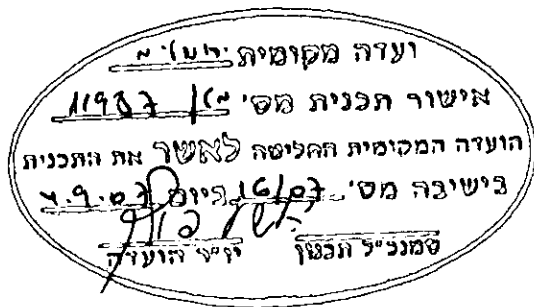 ועדה מקומית
אישור תכנית מס' 11987
הועדה המקומית החליטה לאשר את התכנית
בישיבה מס' 16/07 ביום 4.9.07
סמנכ"ל תכנון יו"ר הועדה